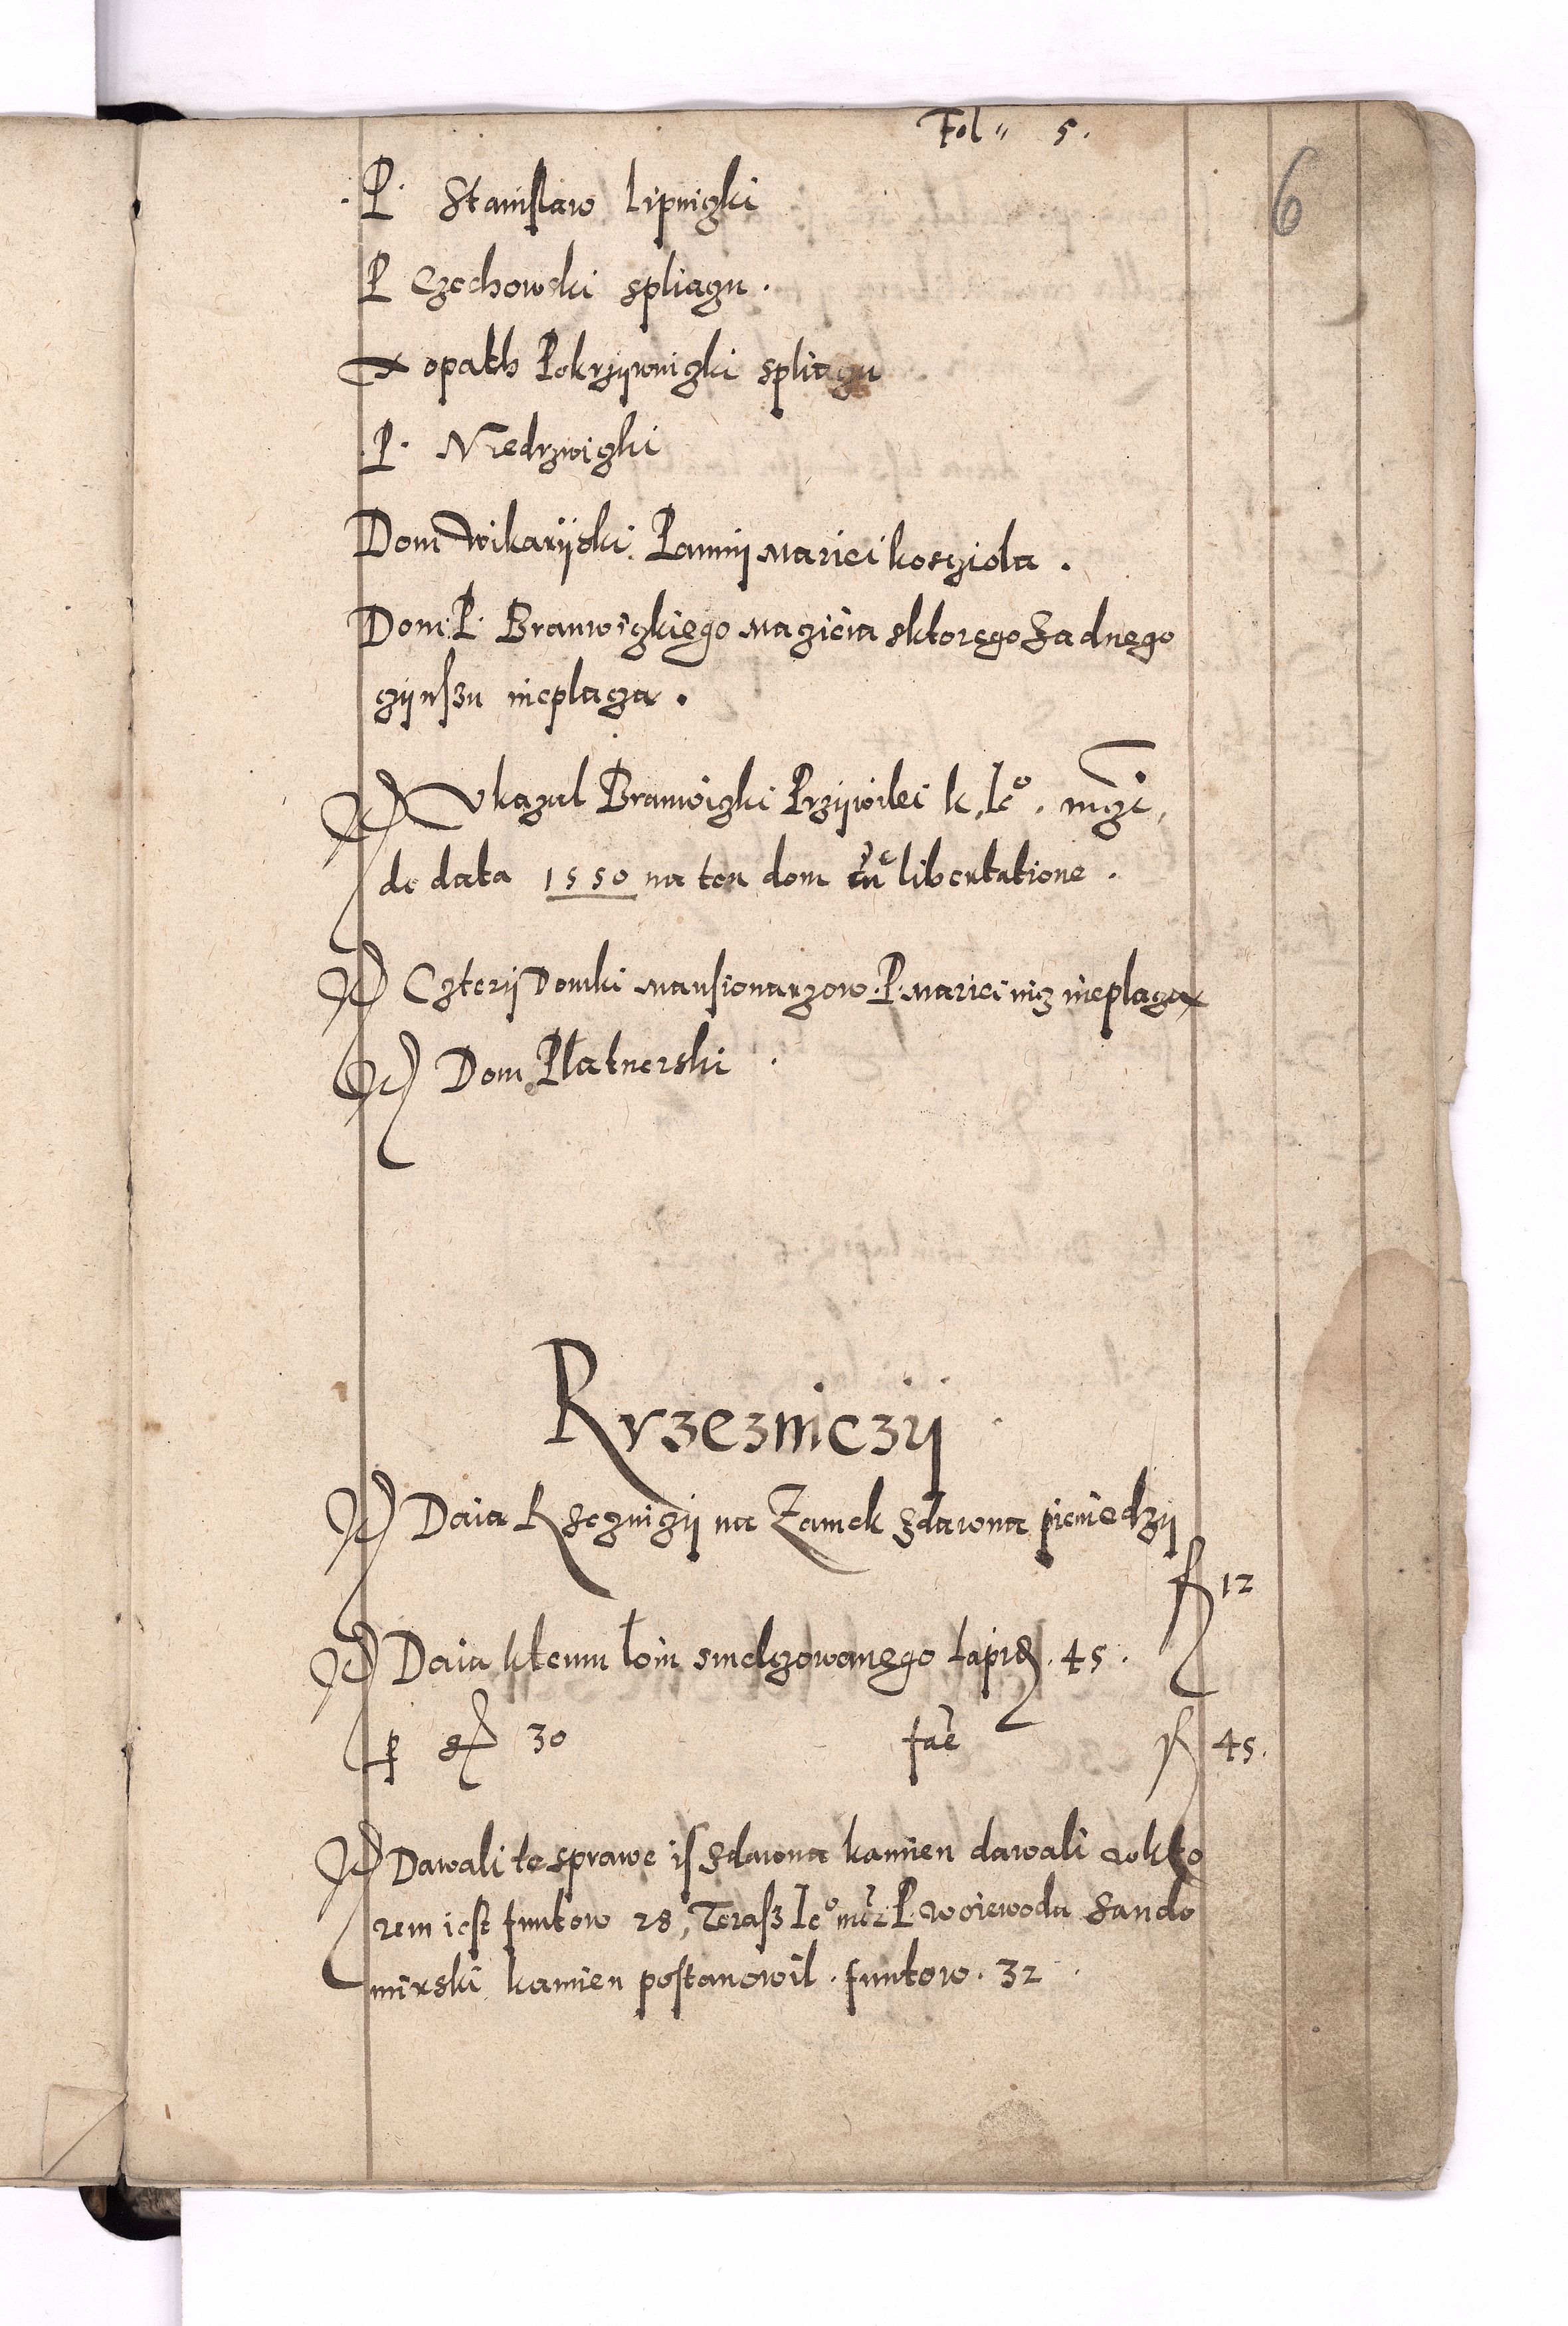 Fol 5.
6
P. Stanislaw Lipnizki
P Czechowski spliagu.
X opath Pokrzywnizki spliagu
P. Niedrzwizki
Dom wikaryiski Pannij Mariei kosziola.
Dom P. Branwizkiego Mazieia sktorego zadnego
zijnszu nieplaza.
Ukazal Branwizki Przijwilei k. Ieo. mzi,
de data 1550 na ten dom cu libertatione.
Czterij Domki Mansionarzow P. Mariei niz nieplaza
Dom Platnerski
Rvzezniczij
Daia Rzeznizij na Zamek zdawna pieniedzij
f 12
Daia ktemu loiu smelzowanego lapid. 45.
p gr 30 fac f 45.
Dawali te sprawe is zdawna kamien dawali wkto
rem iest funtow 28, Terasz Ieo mcz P. Woiewoda Sando
mirski kamien postanowil funtow. 32